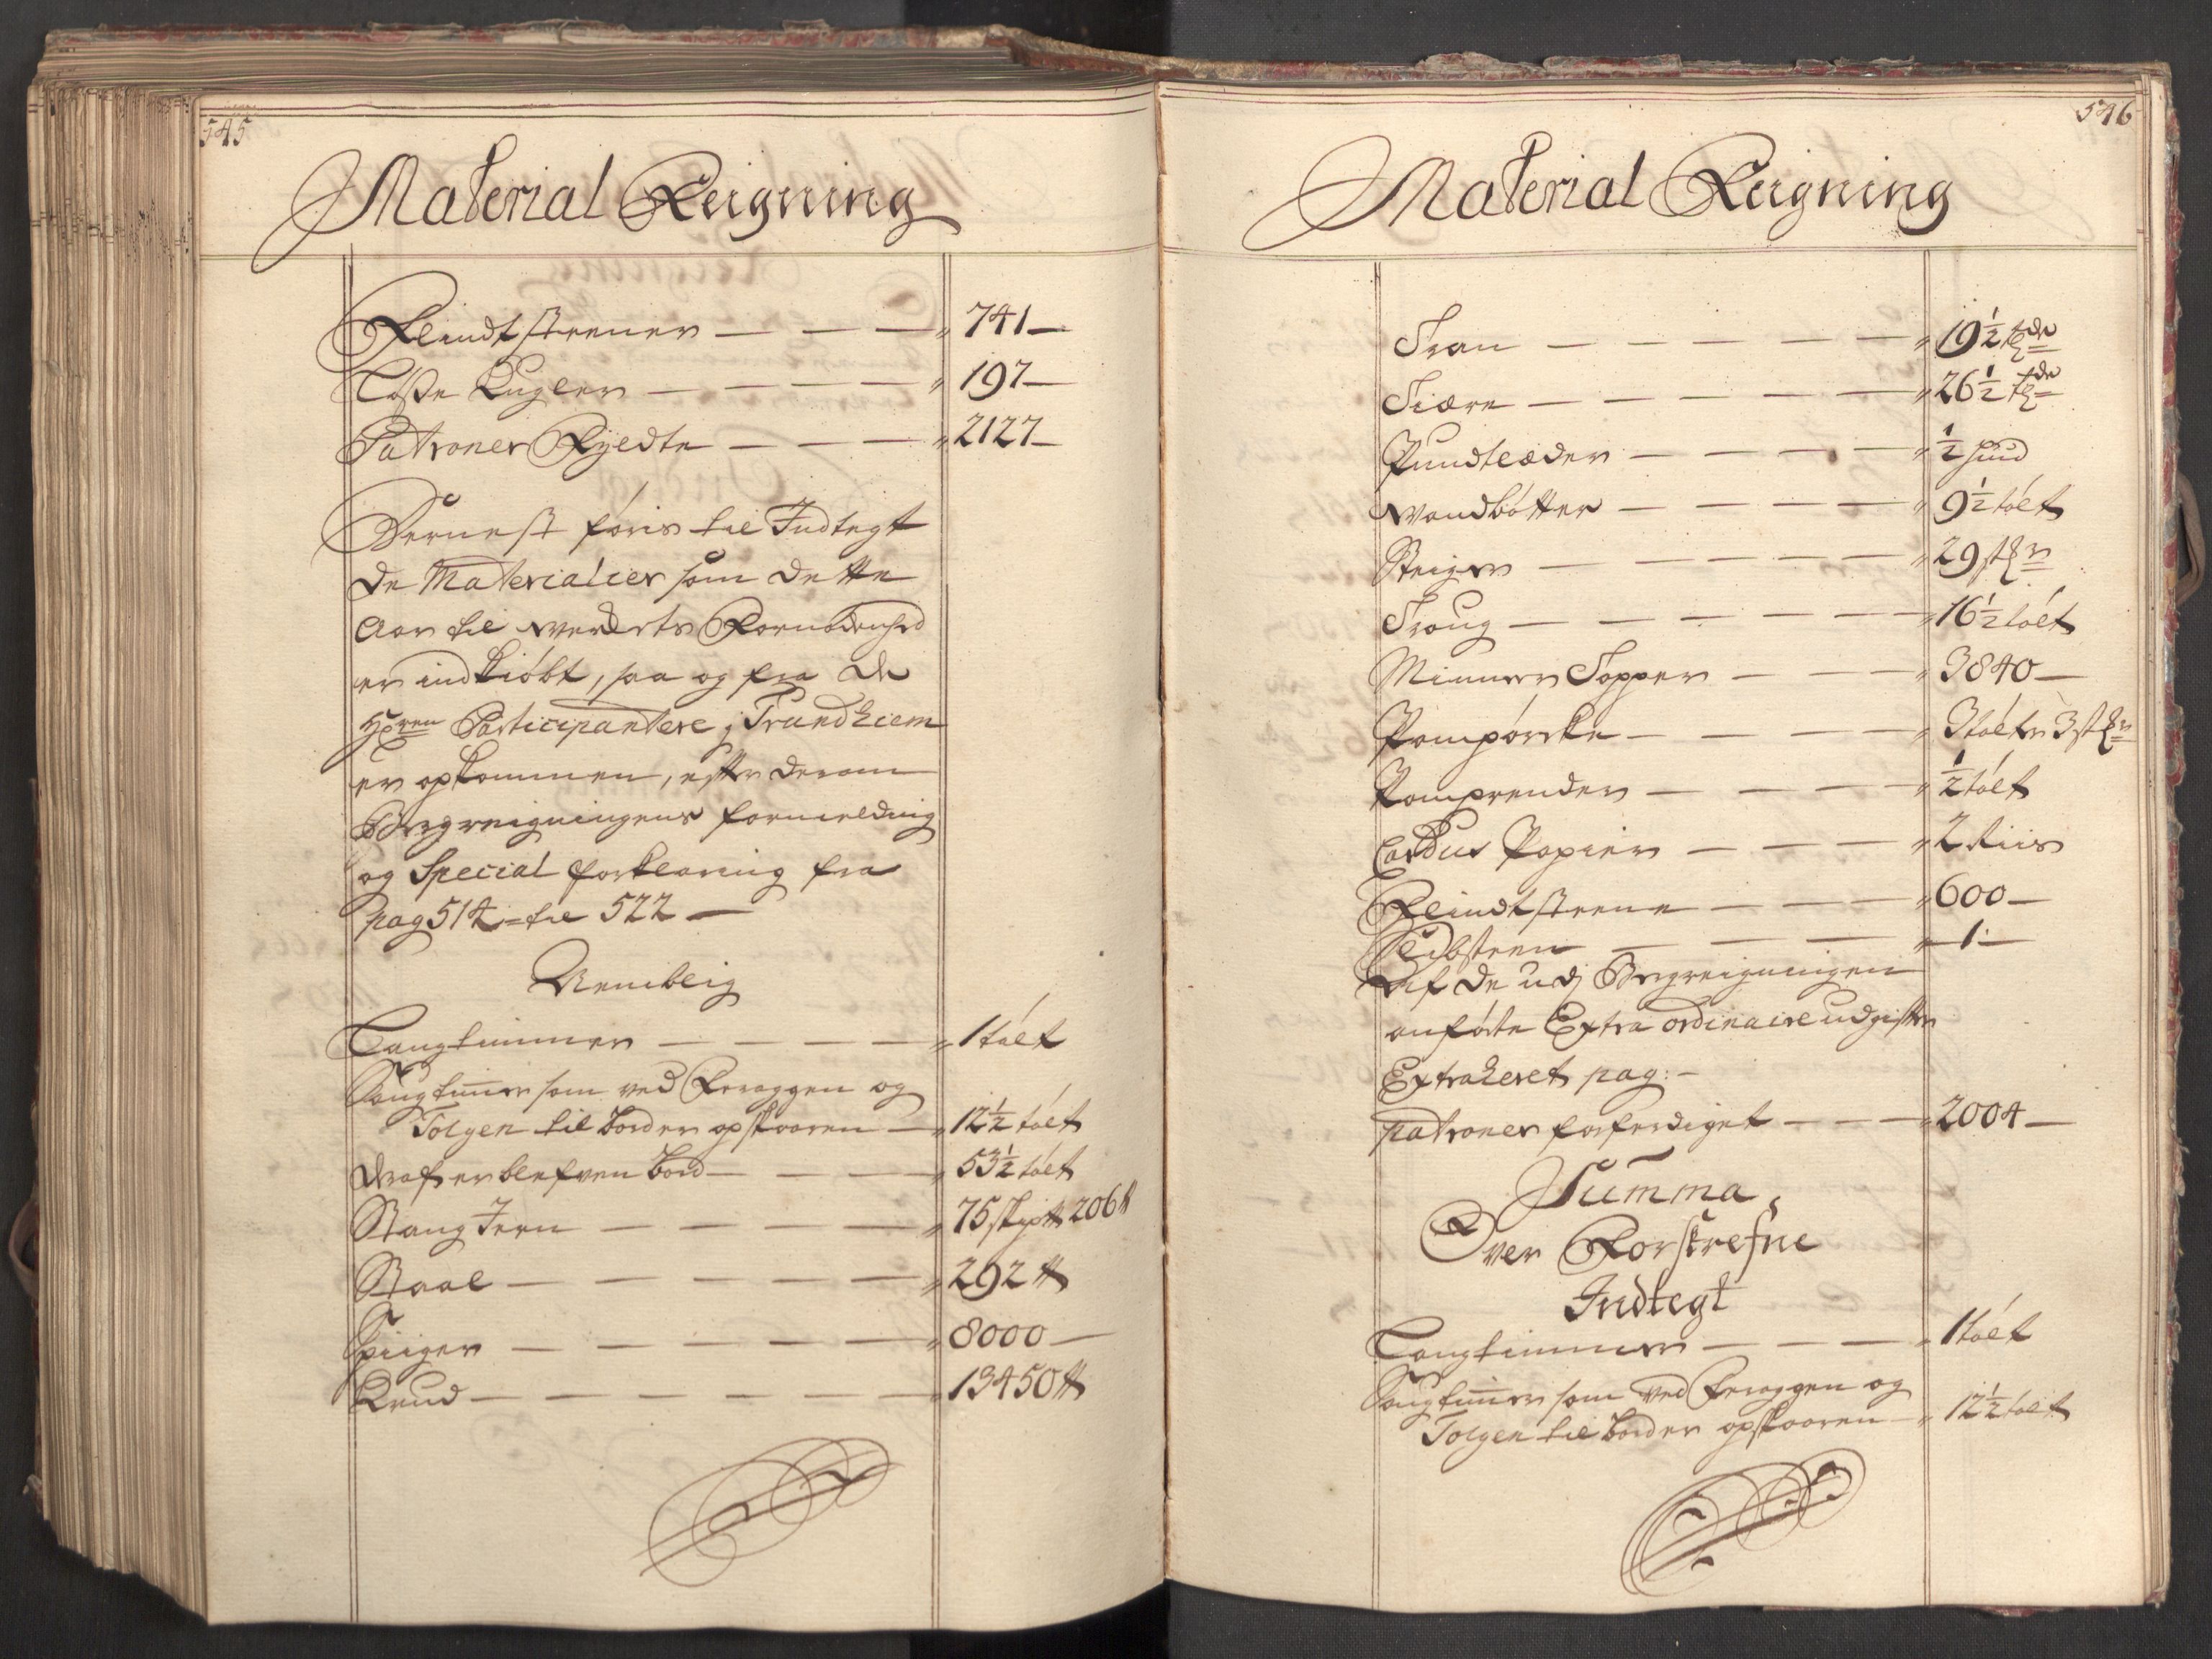 545
Material Reigning
Flindtsteener — — — " 741 —
Løse Kugler — — — — " 197 —
Patroner Fyldte — — — " 2127 —
Dernest føris til Indtegt
de Materialier som dette
Aar til werckets Fornødenhed
er indkiøbt, saa og fra de
Hrren Participantere j Trundhiem
er opkommen, efter derom
Bergreigningens formelding
og Special forklaring fra
pag 514 = til 522 —
Nemblig
Langtimmer — — — — " 1 tålt
Saugtimer som ved Feraggen og
Tolgen til Border opskaaren — " 12½ tålt
deraf er blefven bord — — — " 53½ tålt
Stang Jern — — — — " 75 skip℔ 206 ℔
Staal — — — — — " 292 ℔
Spiiger — — — — — " 8000 —
Krud — — — — — " 13450 ℔
546
Material Reigning
Tran — — — — — " 19½ tde
Tiære — — — — — " 26½ tde
Pundlæder — — — — " ½ huud
wandbøtter — — — — " 9½ tålt
Steiger — — — — " 29 stkr
Troug — — — — — " 16½ tålt
Minner Topper — — — " 3840 —
Pompørske — — — — " 3 tålter 3 stkr
Pomprender — — — — " ½ tålt
Cardus Papier — — — " 2 Riis
Flindtsteene — — — " 600 —
Slibsteen — — — " 1 —
Af de udj Bergreigningen
anførte Extra ordinaire udgifter
Extraheret pag: —
patroner forferdiget — — — " 2004 —
Summa
Over Forskrefne
Indtegt
Langtimmer — — — " 1 tålt
Saugtimer som ved Feraggen og
Tolgen til Border opskaaren — " 12½ tålt